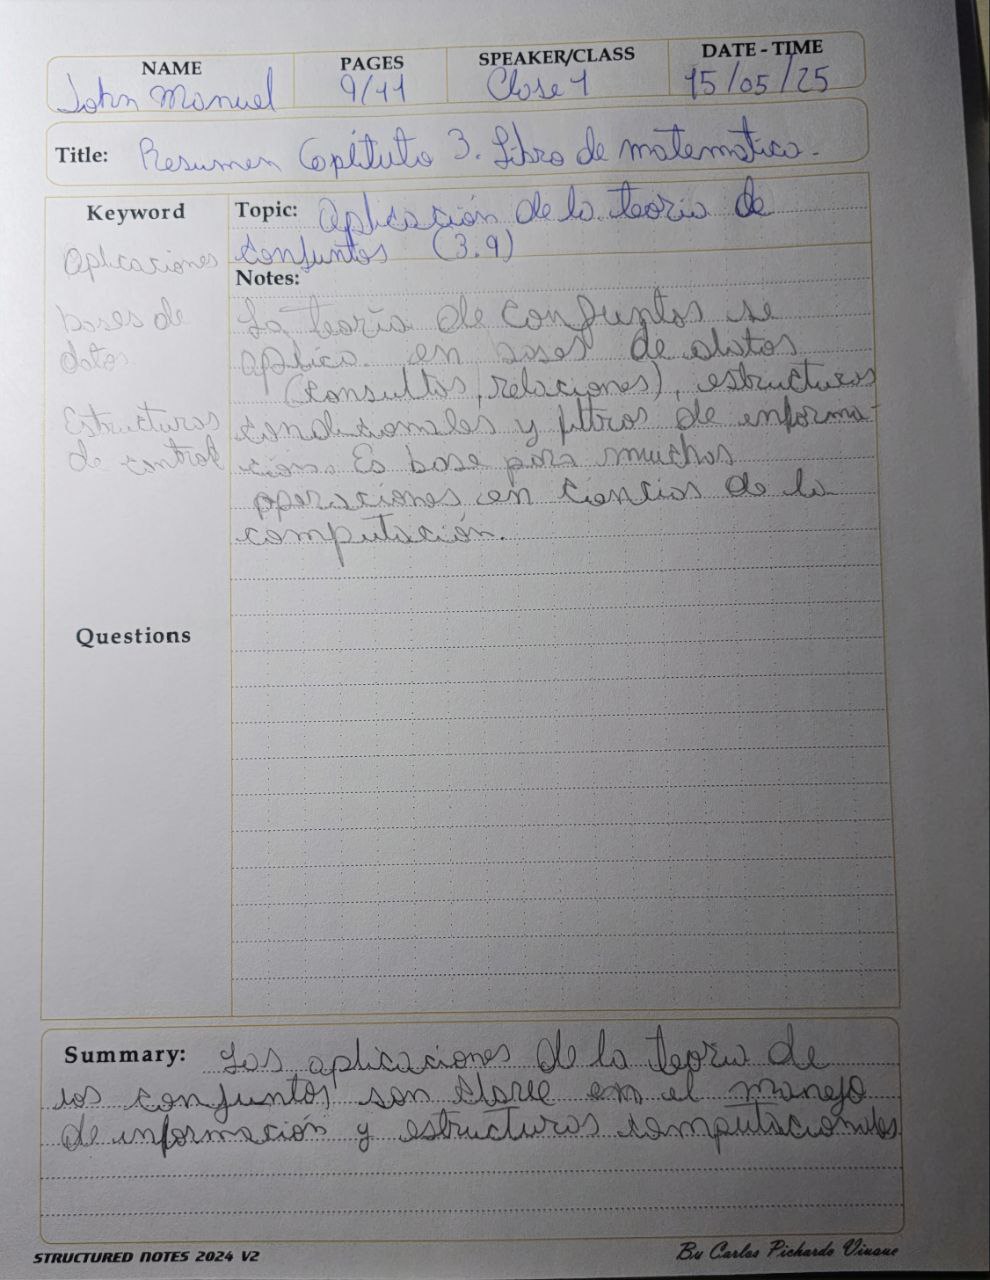 NAME
PAGES
SPEAKER/CLASS
DATE - TIME
John Manuel
9/11
Clase 1
15/05/25
Title: Resumen Capítulo 3. Libro de matematica.
Keyword
Topic: Aplicación de la teoria de
conjuntos (3.9)
Aplicaciones
bases de
datos
Estructuras
de control
Notes:
La teoría de conjuntos se
aplica en bases de datos
(consultas, relaciones), estructuras
condicionales y filtros de informa-
ción. Es base para muchas
operaciones en ciencias de la
computación.
Questions
Summary: Las aplicaciones de la teoria de
los conjuntos son clave en el manejo
de información y estructuras computacionales
STRUCTURED NOTES 2024 V2
By Carlos Pichardo Viuque